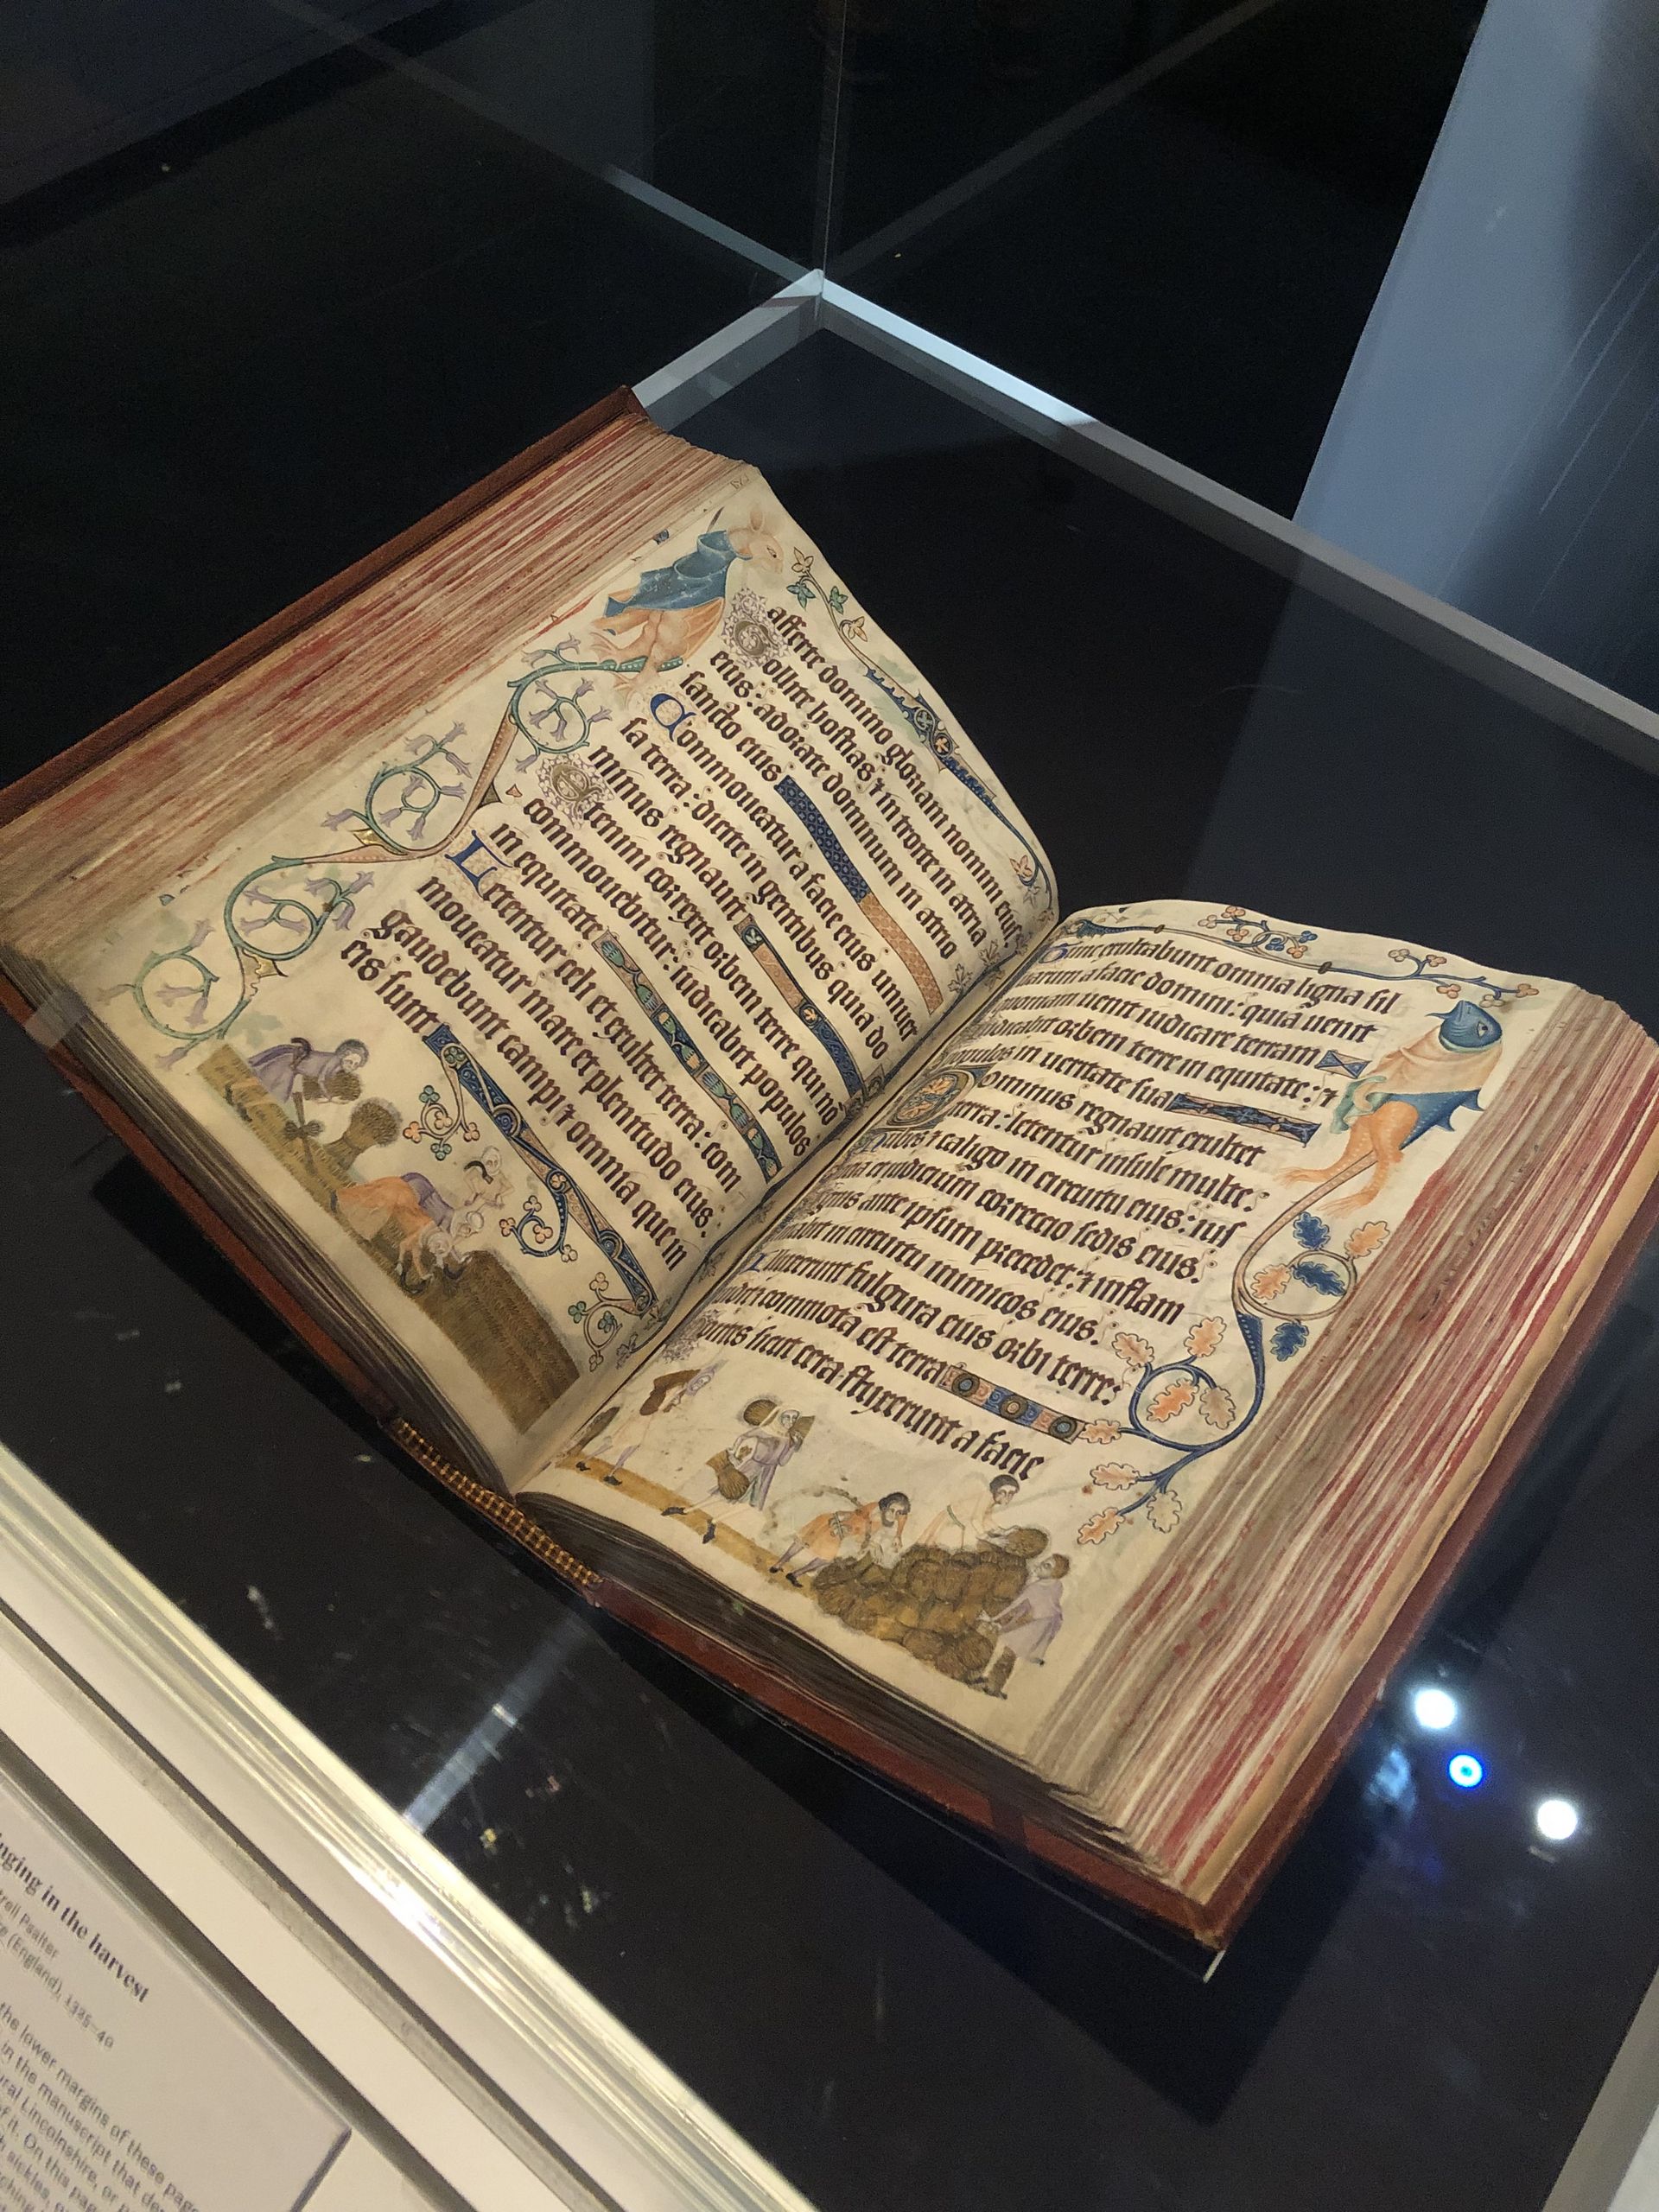 afferte domino gloriam nomini eius.
Tollite hostias ⁊ introite in atria
eius: adorate dominum in atrio
sancto eius
Commoueatur a facie eius uniuer
sa terra: dicite in gentibus quia do
minus regnauit
Etenim correxit orbem terre qui nō
commouebitur: iudicabit populos
in equitate
Letentur celi et exultet terra: com
moueatur mare et plenitudo eius:
gaudebunt campi ⁊ omnia que in
eis sunt
Tunc exultabunt omnia ligna sil
uarum a facie domini: quia uenit
quoniam uenit iudicare terram
iudicabit orbem terre in equitate: ⁊
populos in ueritate sua
Dominus regnauit exultet
terra: letentur insule multe:
Nubes ⁊ caligo in circuitu eius: ius
et iudicium correccio sedis eius.
Ignis ante ipsum precedet: ⁊ inflam
mabit in circuitu inimicos eius.
Illuxerunt fulgura eius orbi terre:
commota est terra
sicut cera fluxerunt a facie
nging in the harvest
Psalter
(England), 1325–40
the lower margins of these page
in the manuscript that de
Lincolnshire, or
of it. On this pag
sickles,